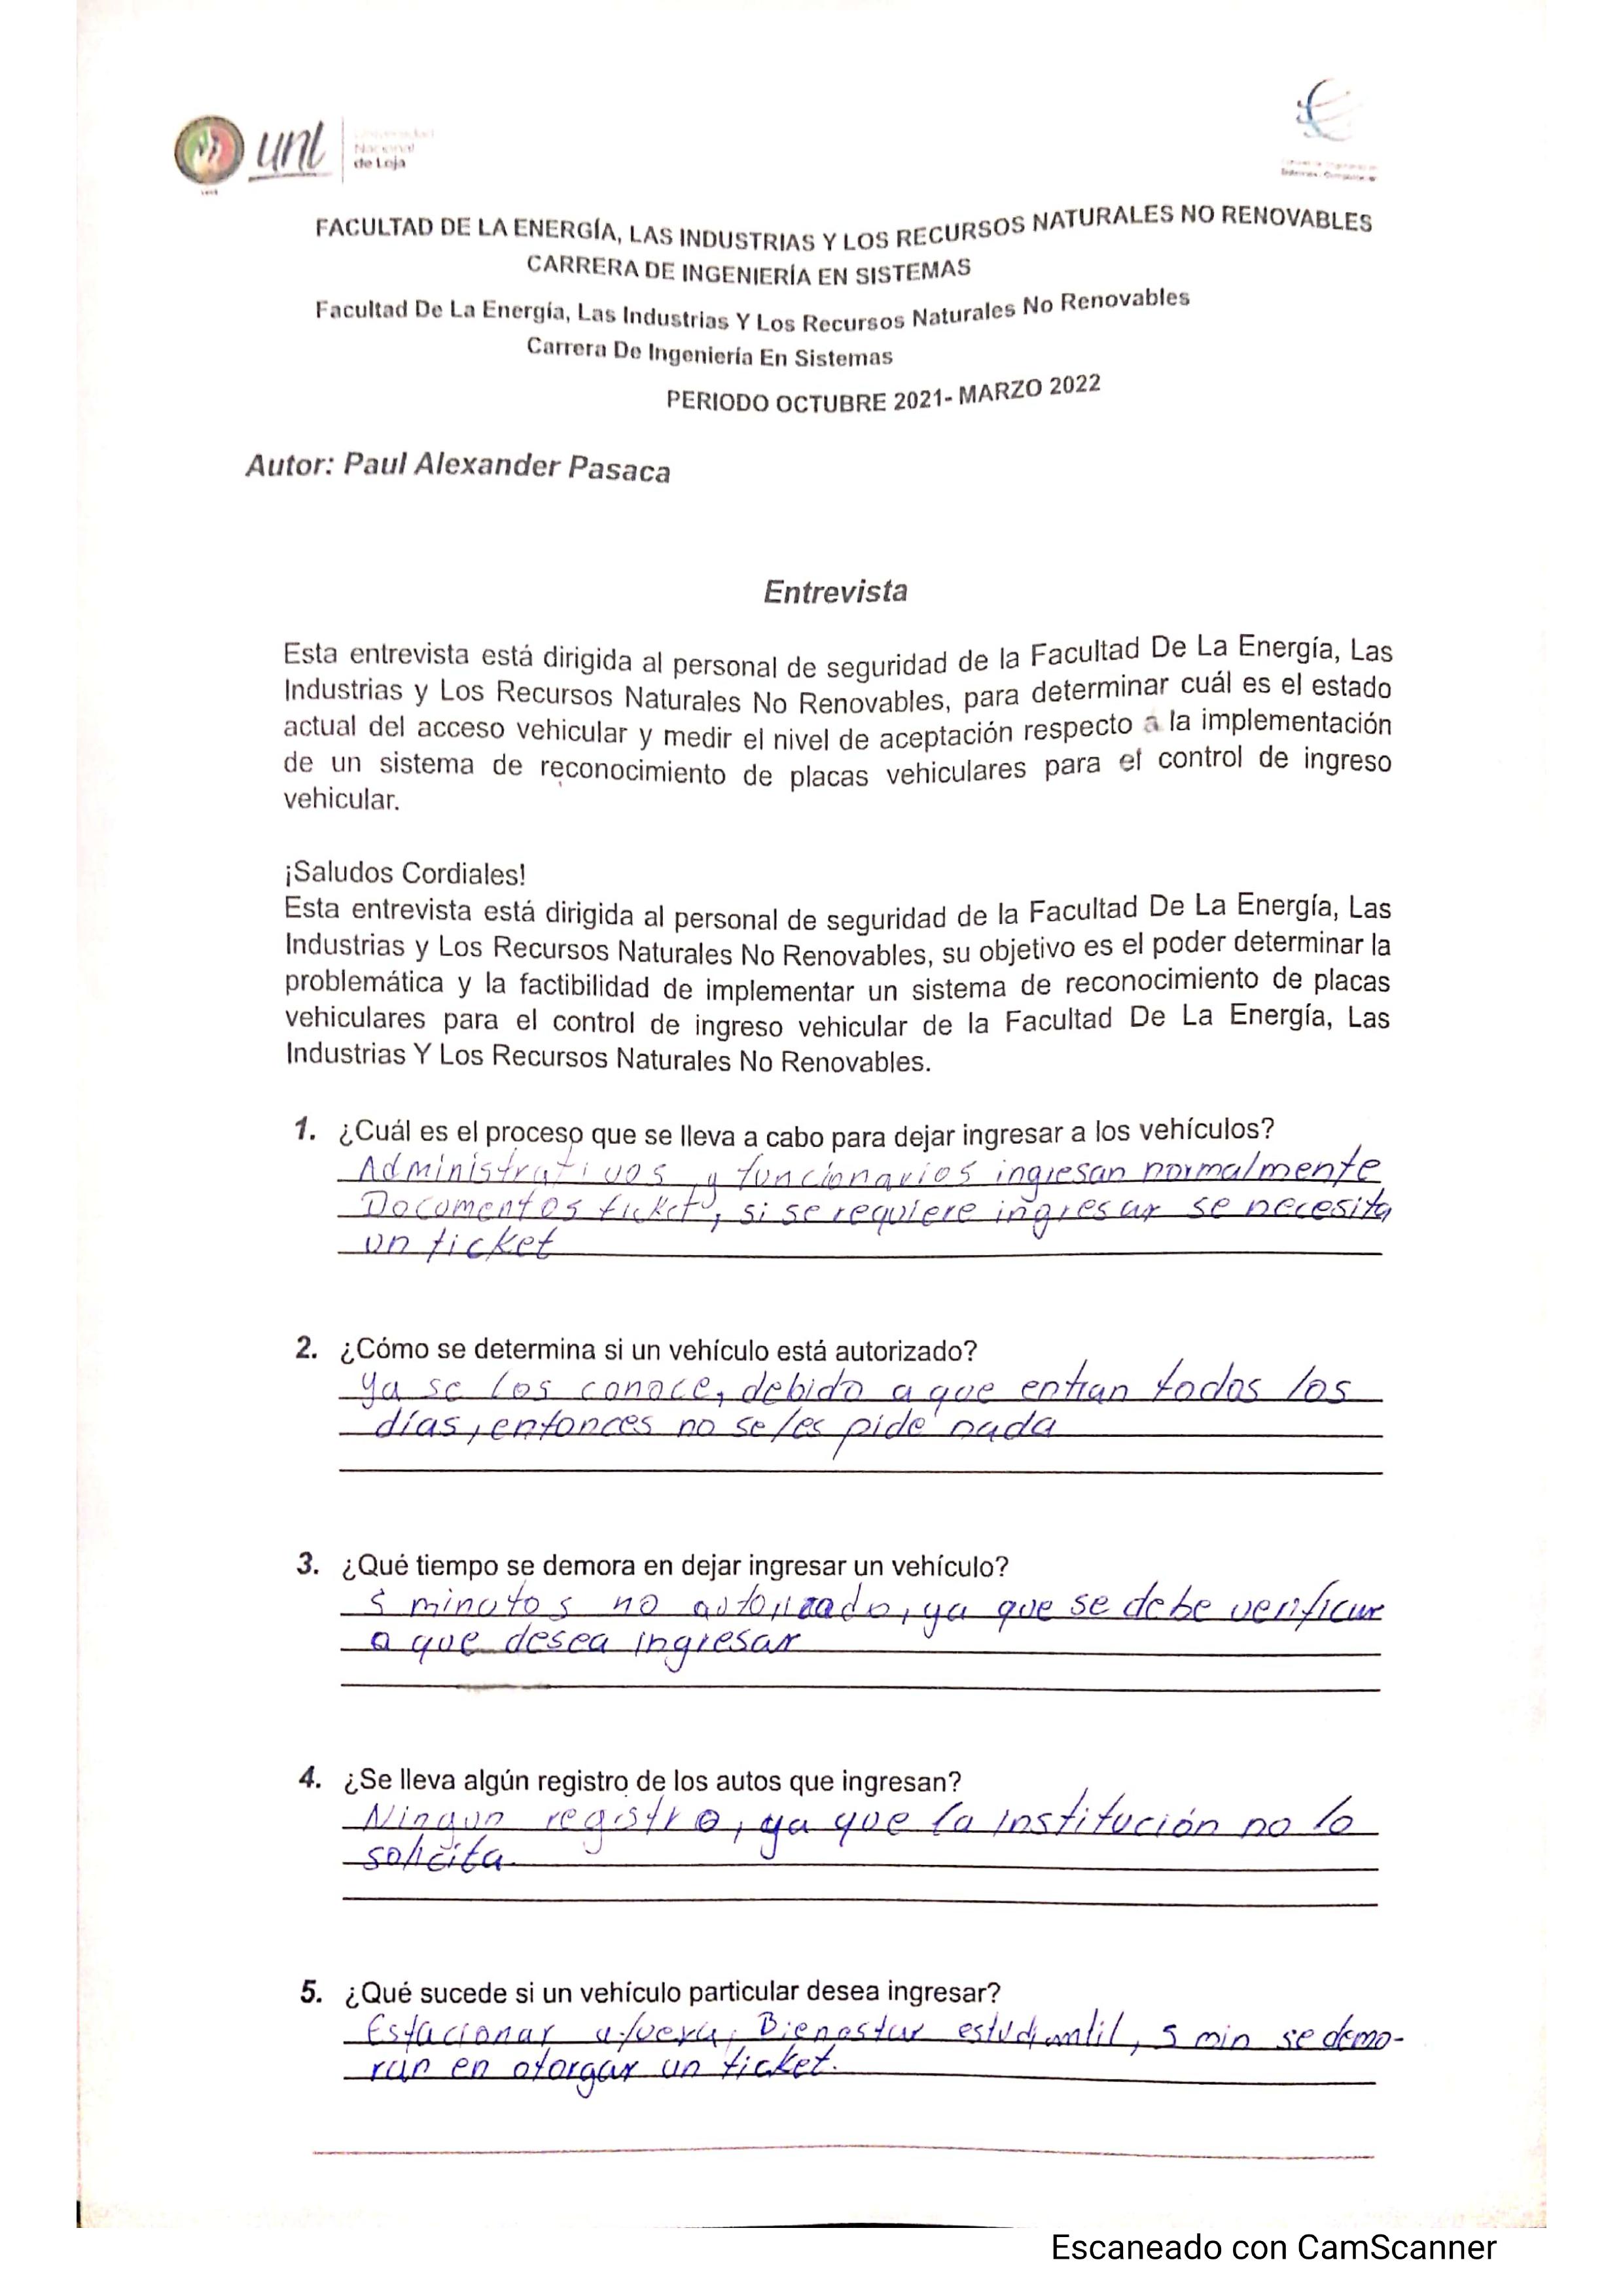 unl
Universidad
Nacional
de Loja
FACULTAD DE LA ENERGÍA, LAS INDUSTRIAS Y LOS RECURSOS NATURALES NO RENOVABLES
CARRERA DE INGENIERÍA EN SISTEMAS
Facultad De La Energía, Las Industrias Y Los Recursos Naturales No Renovables
Carrera De Ingeniería En Sistemas
PERIODO OCTUBRE 2021- MARZO 2022
Autor: Paul Alexander Pasaca
Entrevista
Esta entrevista está dirigida al personal de seguridad de la Facultad De La Energía, Las
Industrias y Los Recursos Naturales No Renovables, para determinar cuál es el estado
actual del acceso vehicular y medir el nivel de aceptación respecto a la implementación
de un sistema de reconocimiento de placas vehiculares para el control de ingreso
vehicular.
¡Saludos Cordiales!
Esta entrevista está dirigida al personal de seguridad de la Facultad De La Energía, Las
Industrias y Los Recursos Naturales No Renovables, su objetivo es el poder determinar la
problemática y la factibilidad de implementar un sistema de reconocimiento de placas
vehiculares para el control de ingreso vehicular de la Facultad De La Energía, Las
Industrias Y Los Recursos Naturales No Renovables.
1. ¿Cuál es el proceso que se lleva a cabo para dejar ingresar a los vehículos?
Administrativos y funcionarios ingresan normalmente
Documentos ticket, si se requiere ingresar se necesita
un ticket
2. ¿Cómo se determina si un vehículo está autorizado?
Ya se los conoce, debido a que entran todos los
días, entonces no se les pide nada
3. ¿Qué tiempo se demora en dejar ingresar un vehículo?
5 minutos no autorizado, ya que se debe verificar
a que desea ingresar
4. ¿Se lleva algún registro de los autos que ingresan?
Ningun registro, ya que la institución no lo
solicita.
5. ¿Qué sucede si un vehículo particular desea ingresar?
Estacionar afuera, Bienestar estudiantil, 5 min se demo-
ran en otorgar un ticket.
Escaneado con CamScanner